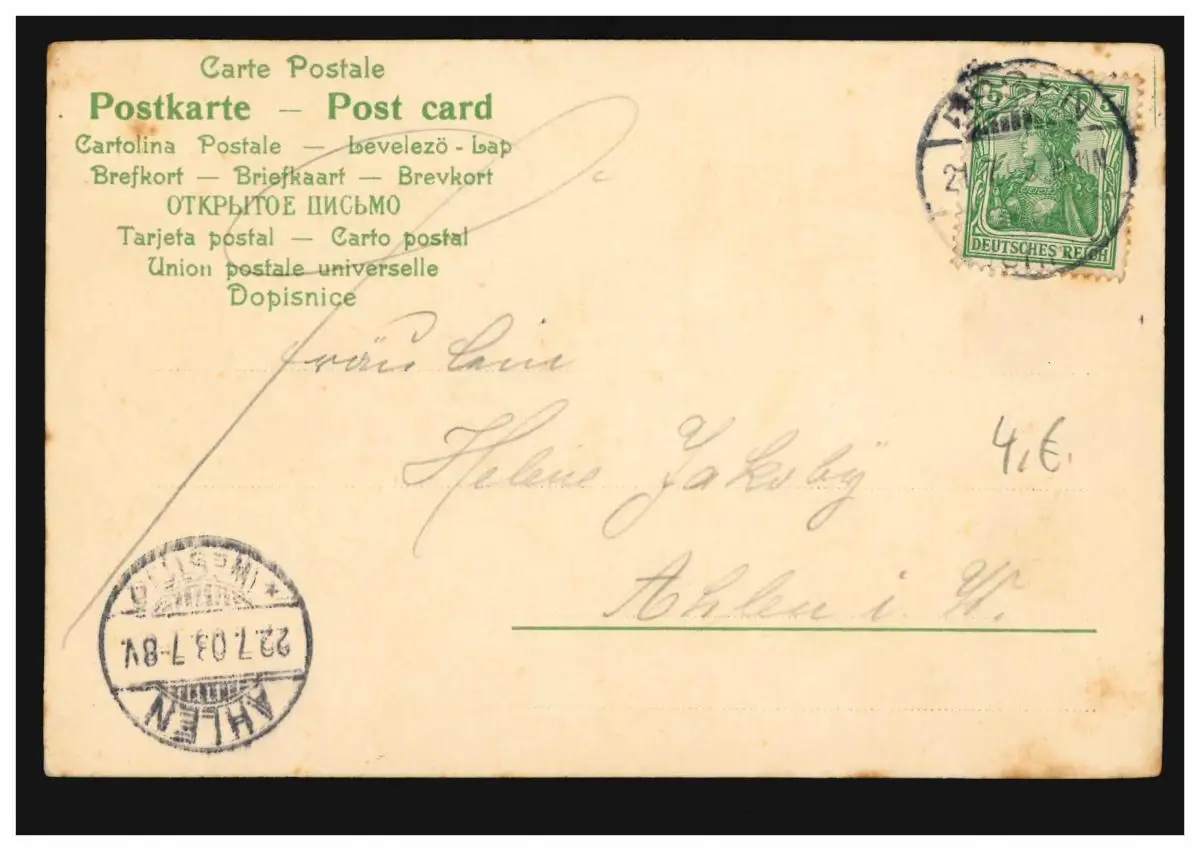 Carte Postale
Postkarte — Post card
Cartolina Postale — Levelezö - Lap
Brefkort — Briefkaart — Brevkort
ОТКРЫТОЕ ПИСЬМО
Tarjeta postal — Carto postal
Union postale universelle
Dopisnice
DEUTSCHES REICH
Fräulein
Helene Jaksby
4,€.
Ahlen i. W.
(WESTF.)
22.7.03.7-8V.
AHLEN